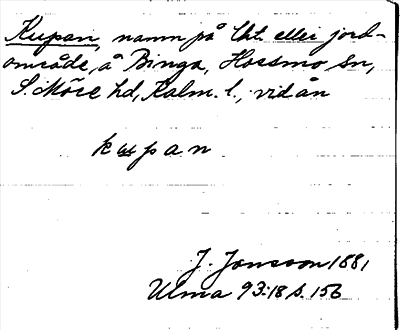 Kupan, namn på lht. eller jord-
område, å Binga, Hossmo sn,
S. Möre hd, Kalm. l., vid ån
kupan
J. Jonsson 1881
Ulma 93:18 s. 156